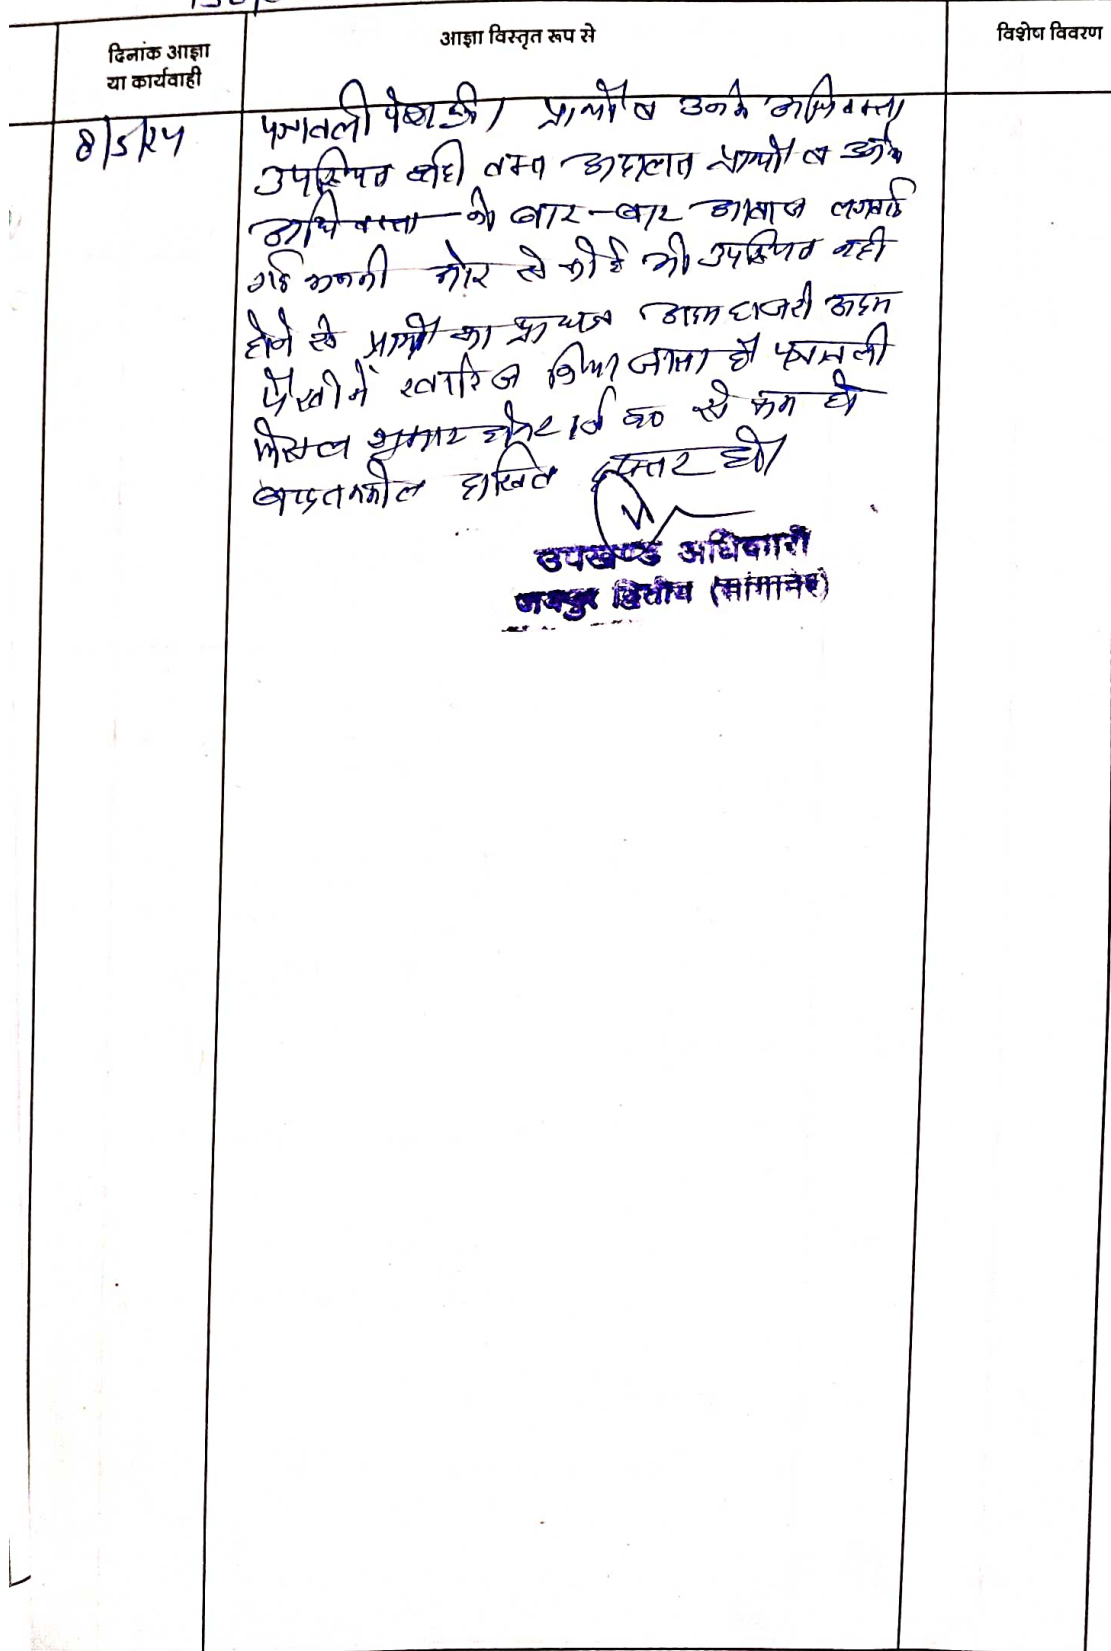 दिनांक आज्ञा
या कार्यवाही
आज्ञा विस्तृत रूप से
विशेष विवरण
8/5/24
पत्रावली पेश हुई। प्रार्थी व उनके अभिवक्ता
उपस्थित नही वक्त अदालत प्रार्थी व उनके
अधिवक्ता को बार-बार आवाज लगवाई
गई उनकी ओर से कोई भी उपस्थित नही
होने से प्रार्थी का प्रा पत्र अदम हाजरी अदम
पैरवी में खारिज किया जाता है पत्रावली
फैसल शुमार होकर नं० से कम हो
बादतकमील दाखिल दफ्तर हो।
उपखण्ड अधिकारी
जयपुर द्वितीय (सांगानेर)